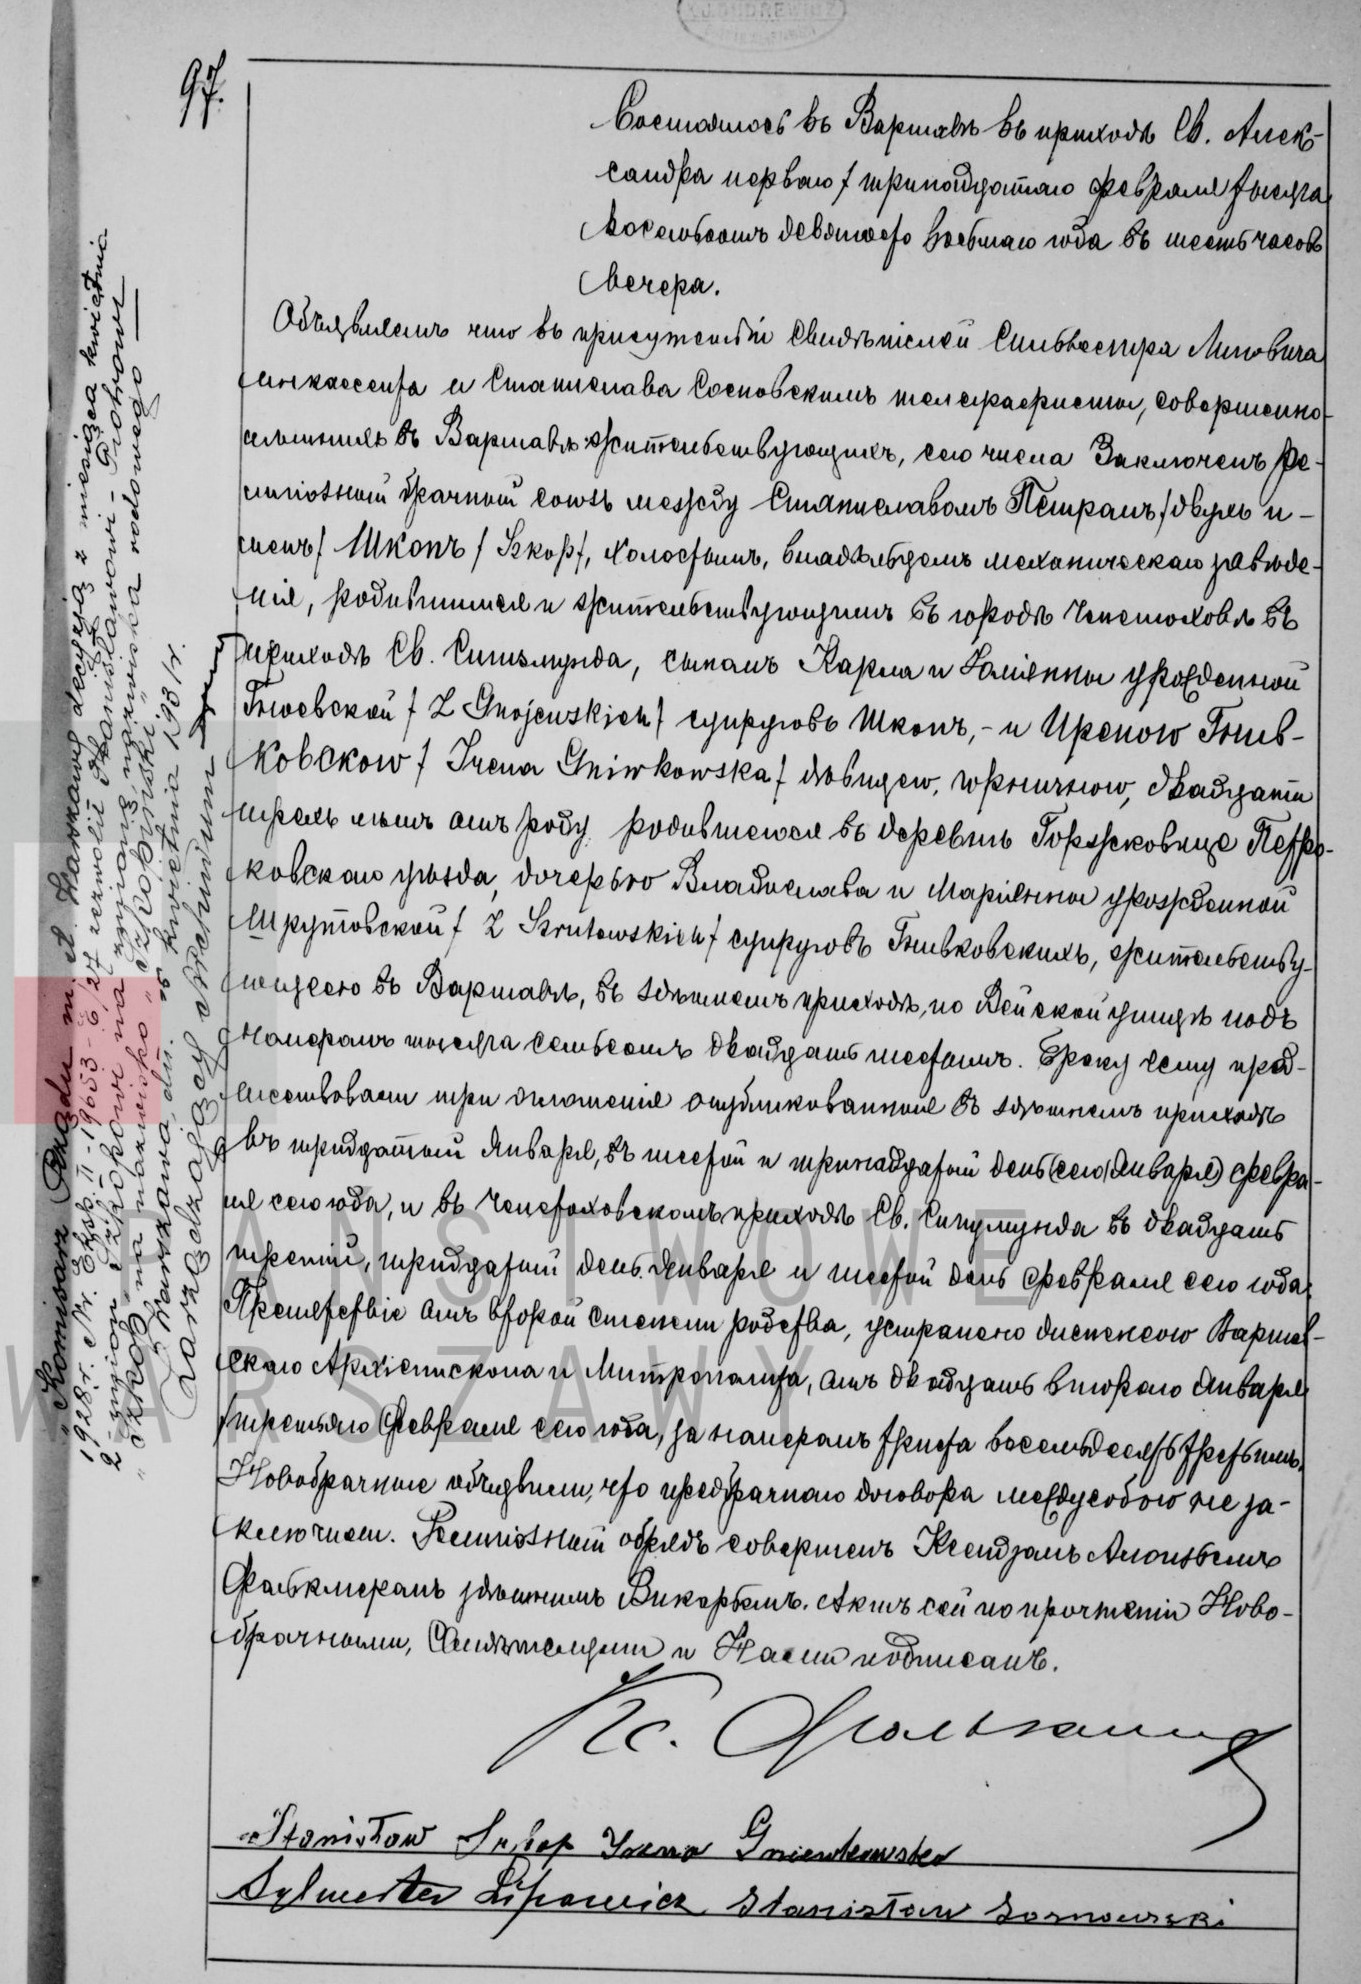 97.
Состоялось въ Варшавѣ въ приходѣ Св. Алек-
сандра перваго / тринадцатаго февраля тысяча
восемьсотъ девяносто восьмаго года въ шесть часовъ
вечера.
Объявляемъ что въ присутствіи свидѣтелей Сильвестра Липовича
инкассента и Станислава Сосновскимъ телеграфиста, совершенно-
лѣтнихъ въ Варшавѣ жительствующихъ, сего числа заключенъ ре-
лигіозный брачный союзъ между Станиславомъ Петромъ / двухъ и-
менъ / Шкопъ / Szkop /, холостымъ, владѣльцемъ механическаго заведе-
нія, родившимся и жительствующимъ въ городѣ Ченстоховѣ въ
приходѣ Св. Сигизмунда, сыномъ Карла и Юліянны урожденной
Гноевской / z Gnojewskich / супруговъ Шкопъ, - и Иреною Гнив-
ковскою / Irena Gniwkowska / дѣвицею, горничною, двадцати
трехъ лѣтъ отъ роду родившеюся въ деревнѣ Горжковице Петро-
ковскаго уѣзда, дочерью Владислава и Маріянны урожденной
Шрутовской / z Szrutowskich / супруговъ Гнивковскихъ, жительству-
ющею въ Варшавѣ, въ здѣшнемъ приходѣ, по Вейской улицѣ подъ
номеромъ тысяча семьсотъ двадцать шестымъ. Браку сему пред-
шествовали три оглашенія опубликованныя въ здѣшнемъ приходѣ
въ тридцатый Января, въ шестой и тринадцатый день (сего Января) февра-
ля сего года, и въ Ченстоховскомъ приходѣ Св. Сигизмунда въ двадцать
третій, тридцатый день Января и шестой день февраля сего года;
Препятствіе отъ второй степени родства, устранено диспенсою Варшав-
скаго Архіепископа и Митрополита, отъ двадцать втораго Января
/ третьяго Февраля сего года, за номеромъ триста восемьдесятъ третьимъ.
Новобрачные объявили, что предбрачнаго договора между собою не за-
ключили. Религіозный обрядъ совершенъ Ксендзомъ
здѣшнимъ Викарьемъ. Актъ сей по прочтеніи Ново-
брачными, Свидѣтелями и Нами подписанъ.
Кс.
Stanisław Szkop Irena Gniewkowska
Sylwester Lipowicz Stanisław Sosnowski
"Komisarz Rządu m. st. Warszawy decyzją z miesiąca kwietnia
1928 r. Nr. Eksp. II-19653-6/27 zezwolił Stanisławowi-Piotrowi
2 imion Szkopowi na zmianę nazwiska rodowego
"Szkop" na nazwisko "Szkopiński"
Warszawa, dn. kwietnia 1931 r.
Zarządzający Archiwum
PAŃSTWOWE
WARSZAWY